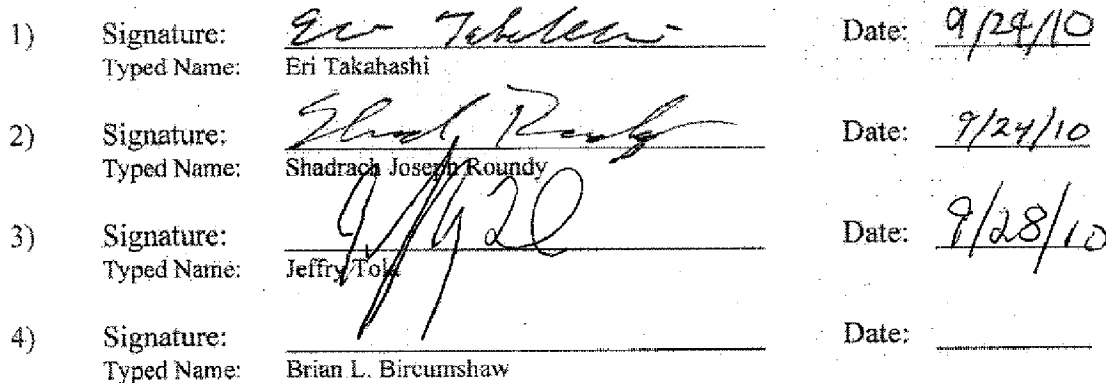 1) Signature: Date: 9/24/10
Typed Name: Eri Takahashi
2) Signature: Date: 9/24/10
Typed Name: Shadrach Joseph Roundy
3) Signature: Date: 9/28/10
Typed Name: Jeffry Tola
4) Signature: Date:
Typed Name: Brian L. Bircumshaw